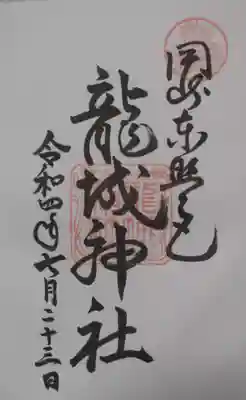 岡崎東照宮
龍城神社
令和四年六月二十三日